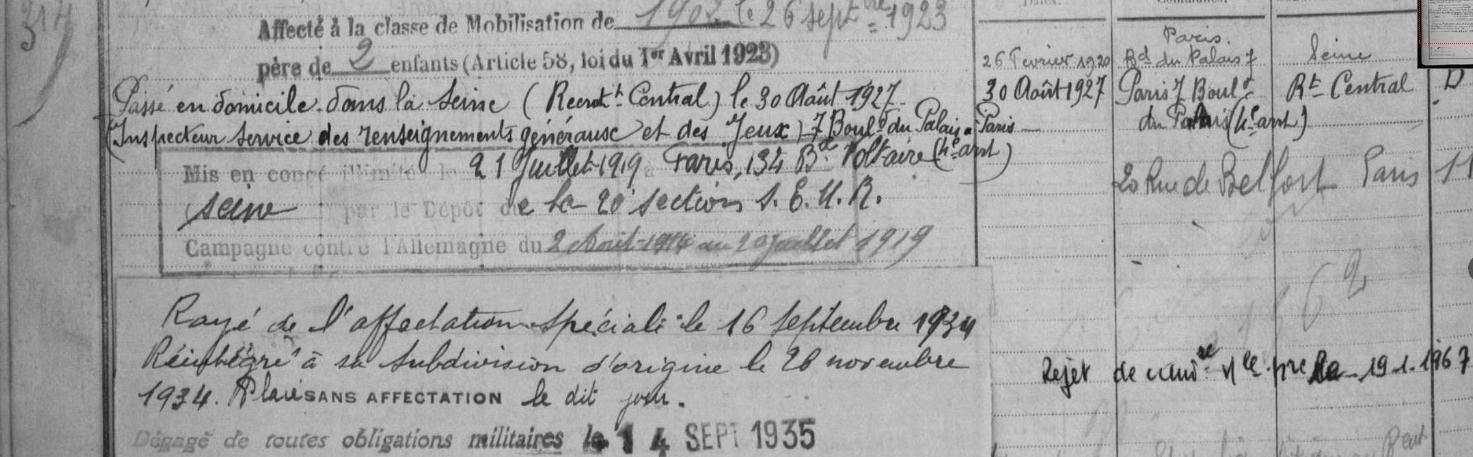 Affecté à la classe de Mobilisation de 1902 le 26 septbre 1923
père de 2 enfants (Article 58, loi du 1er Avril 1923)
Passé en domicile dans la Seine (Recrt Central) le 30 Août 1927
(Inspecteur service des renseignements généraux et des Jeux) 7 Bould du Palais Paris
Mis en congé illimité le 21 Juillet 1919 Paris, 134 Bd Voltaire (4e arrt)
Seine par le Dépôt de la 20 section S. E. M. R.
Campagne contre l'Allemagne du 2 Août 1914 au 20 juillet 1919
Rayé de l'affectation spéciale le 16 septembre 1934
Réintégré à sa subdivision d'origine le 28 novembre
1934. Placé SANS AFFECTATION le dit jour.
Dégagé de toutes obligations militaires le 14 SEPT 1935
314
26 Février 1920 Paris. Bd du Palais 7 Seine
30 Août 1927 Paris 7 Bould du Palais (4e arrt) Rt Central D
20 Rue de Belfort Paris 11
Rejet de 19.1.1967